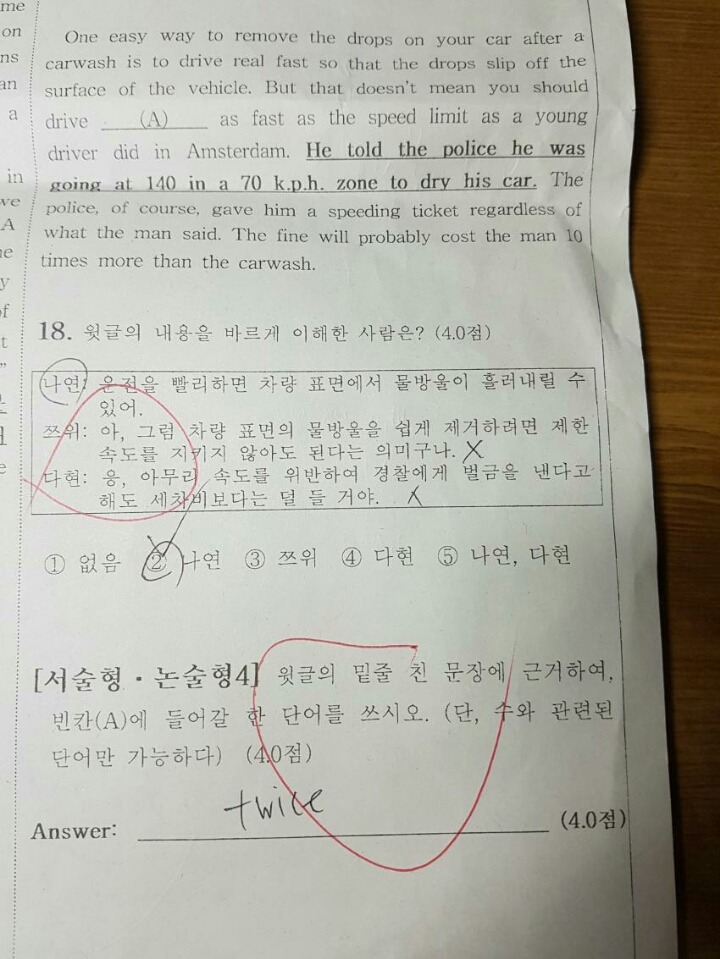 me
on
ns
an
a
in
we
A
he
y
of
t
"
e
One easy way to remove the drops on your car after a
carwash is to drive real fast so that the drops slip off the
surface of the vehicle. But that doesn't mean you should
drive (A) as fast as the speed limit as a young
driver did in Amsterdam. He told the police he was
going at 140 in a 70 k.p.h. zone to dry his car. The
police, of course, gave him a speeding ticket regardless of
what the man said. The fine will probably cost the man 10
times more than the carwash.
18. 윗글의 내용을 바르게 이해한 사람은? (4.0점)
나연: 운전을 빨리하면 차량 표면에서 물방울이 흘러내릴 수
있어.
쯔위: 아, 그럼 차량 표면의 물방울을 쉽게 제거하려면 제한
속도를 지키지 않아도 된다는 의미구나. X
다현: 응, 아무리 속도를 위반하여 경찰에게 벌금을 낸다고
해도 세차비보다는 덜 들 거야. X
① 없음 ② 나연 ③ 쯔위 ④ 다현 ⑤ 나연, 다현
[서술형·논술형4] 윗글의 밑줄 친 문장에 근거하여,
빈칸(A)에 들어갈 한 단어를 쓰시오. (단, 수와 관련된
단어만 가능하다) (4.0점)
Answer: twice (4.0점)